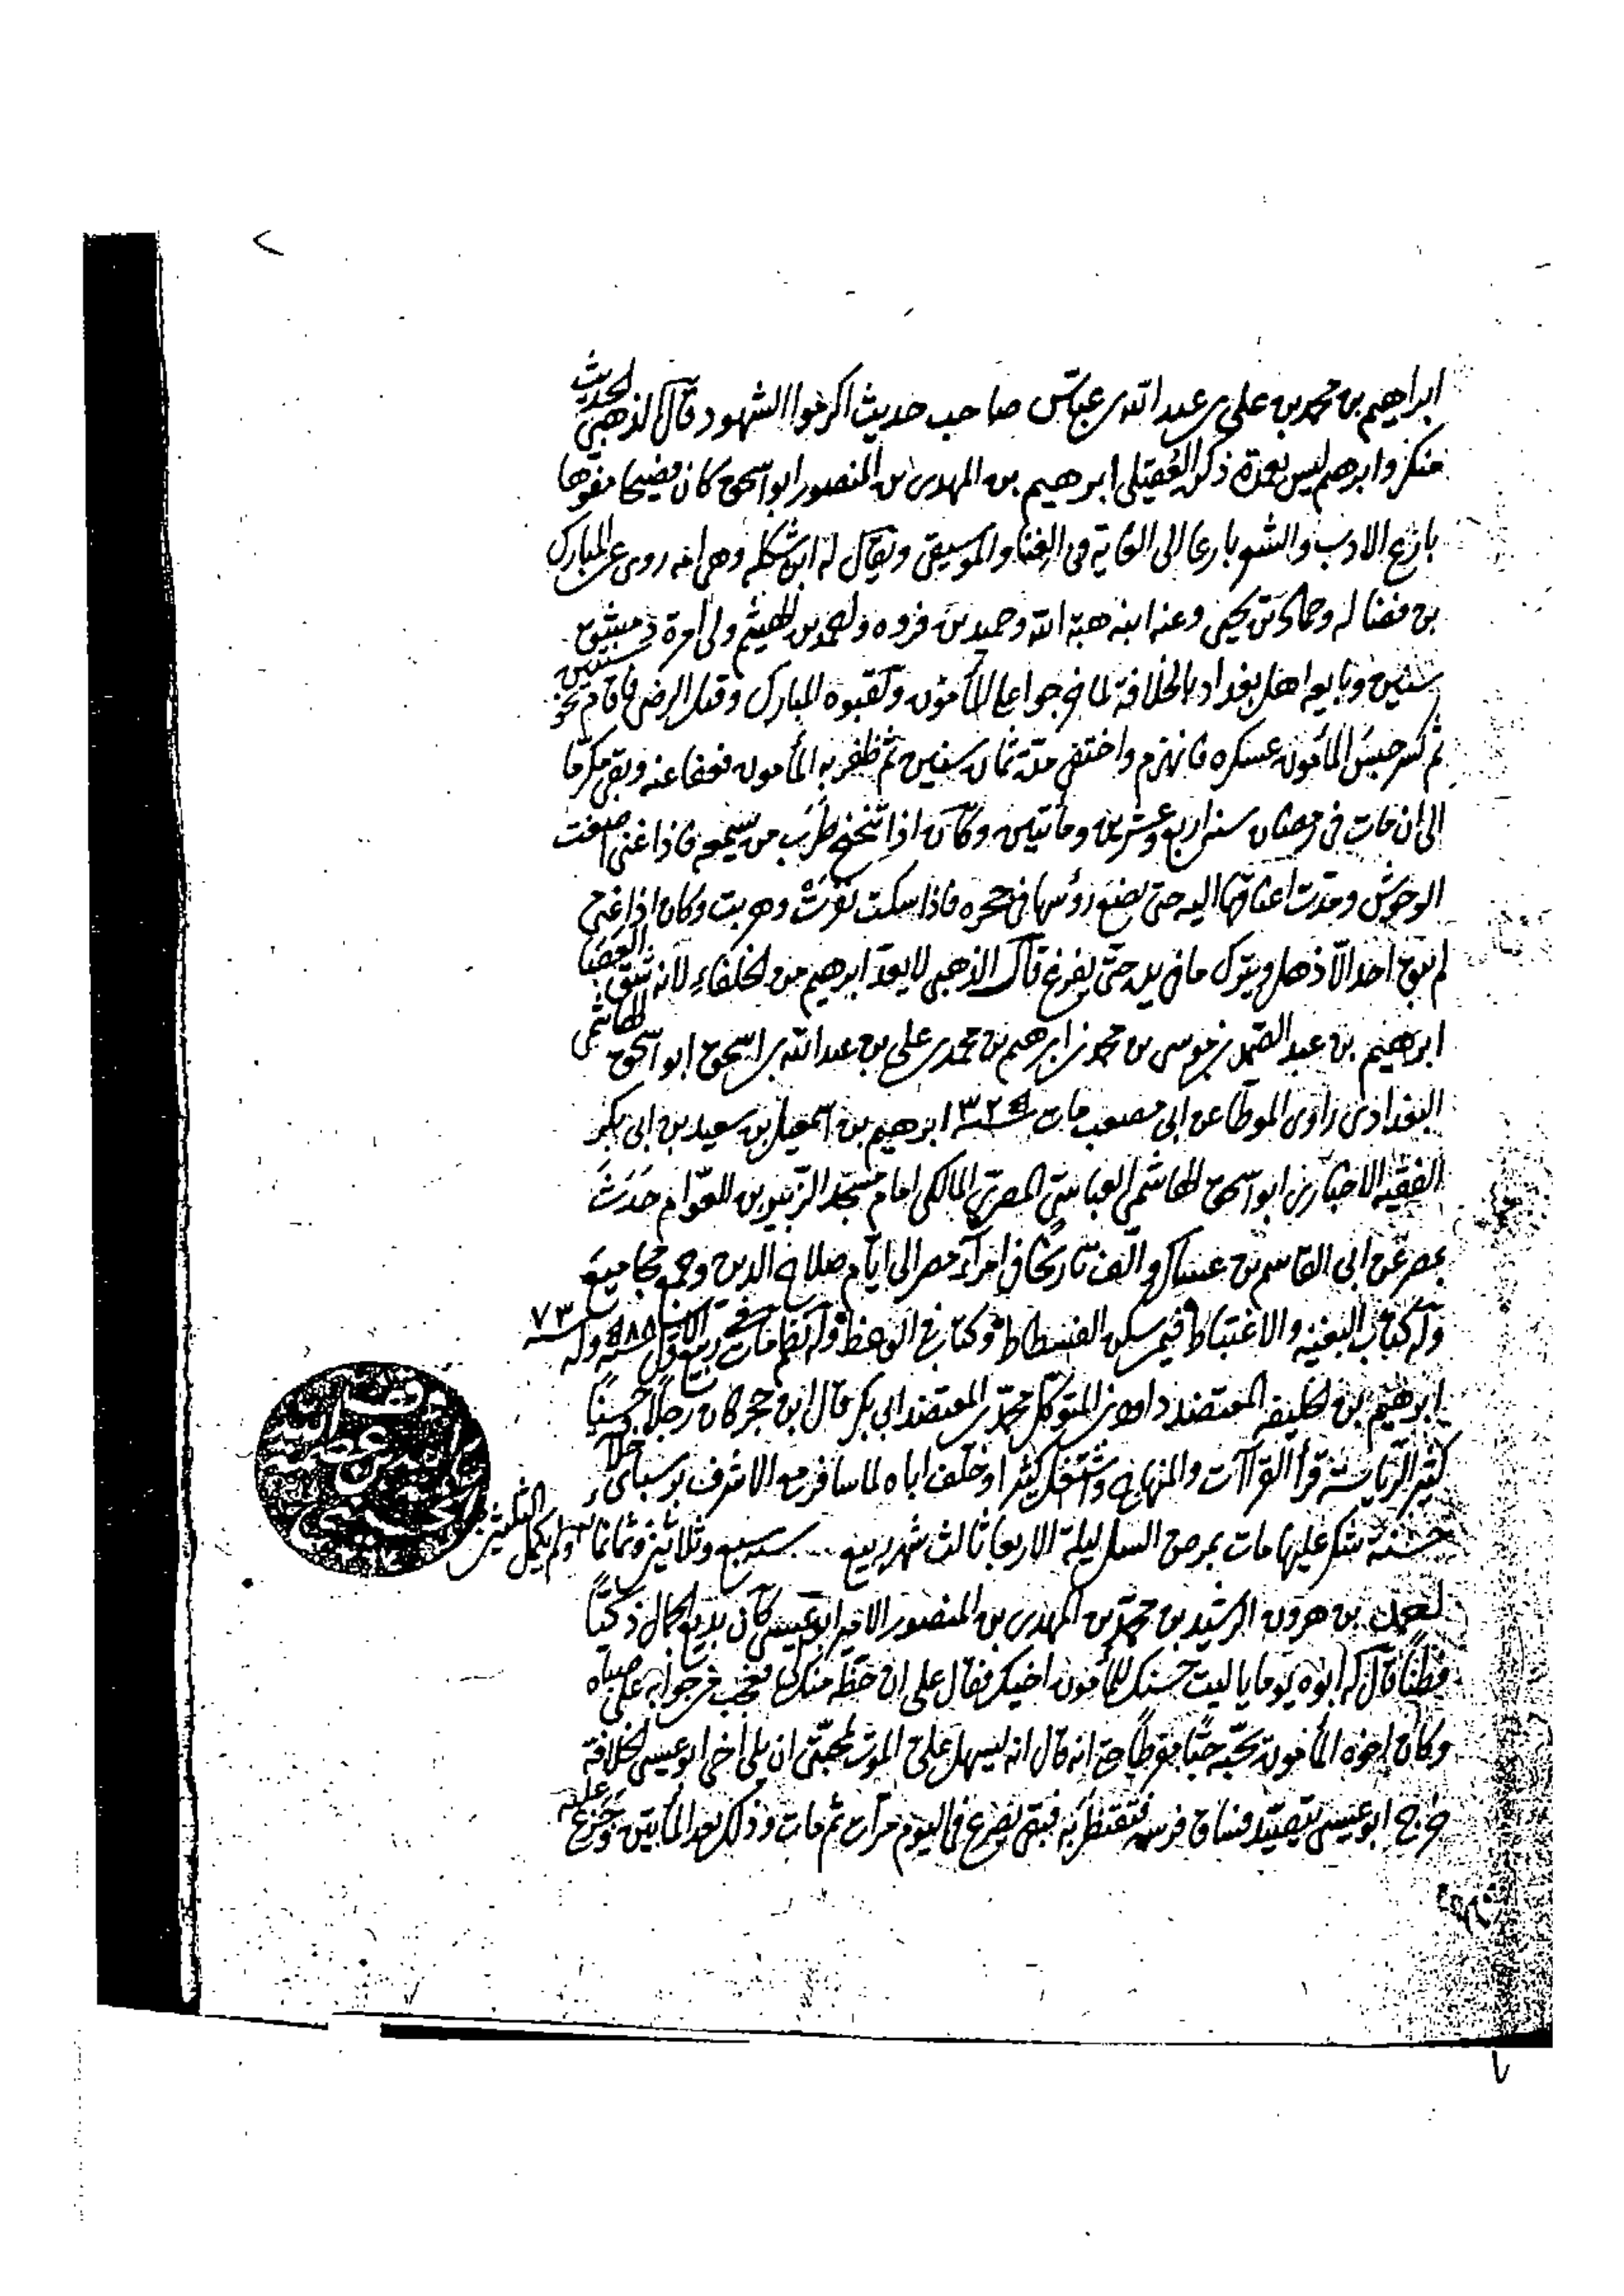 ابراهيم بن محمد بن علي بن عبد الله بن عباس صاحب حديث اكرموا الشهود قال الذهبي الحديث
منكر وابرهيم ليس بعمدة ذكره العقيلي ابرهيم بن المهدى بن المنصور ابو اسحق كان فصيحا مفوها
بارع الادب والشعر بارعا الى الغاية فى الغنا والموسيقى ويقال له ابن شكله وهى امه روى عن المبارك
بن فضاله وحماد بن يحيى وعنه ابنه هبة الله وحميد بن فروه واحمد بن الهيثم ولى امرة دمشق
سنين وبايعه اهل بغداد بالخلافة لما خرجوا على المأمون ولقبوه المبارك وقيل الرضى فاقام نحو سنتين
ثم كسر جيش المأمون عسكره فانهزم واختفى مدة ثمان سنين ثم ظفر به المأمون فعفا عنه وبقى مكرما
الى ان مات فى رمضان سنه اربع وعشرين ومأتين وكان اذا تنحنح طرب من سمعه فاذا غنى اصغت
الوحوش ومدت اعناقها اليه حتى تضع رؤسها فى حجره فاذا سكت نفرت وهربت وكان اذا غنى
لم يبق احد الا ذهل ويترك ما فى يده حتى يفرغ قال الذهبى لا يعد ابرهيم من الخلفاء لانه شق العصا
ابرهيم بن عبد الصمد بن موسى بن محمد بن ابرهيم بن محمد بن على بن عبد الله بن اسحق ابو اسحق الهاشمى
البغدادى راوى الموطأ عن ابى مصعب مات سنة ٣٢٥ ابرهيم بن اسمعيل بن سعيد بن ابى بكر
الفقيه الاخبارى ابو اسحق الهاشمى العباسى المصرى المالكى امام مسجد الزبير بن العوام حدث
بمصر عن ابى القاسم بن عساكر والف تاريخا فى امرآء مصر الى ايام صلاح الدين وجمع مجاميع
وله كتاب البغيه والاغتباط فيمن سكن الفسطاط وكتاب فى الوعظ وله نظم مات فى ربيع الاول سنة ٥٨٨ وله ٧٣ سنة
ابرهيم بن الخليفه المعتضد داود بن المتوكل محمد بن المعتضد ابى بكر قال ابن حجر كان رجلا حسنا
كثير الرياسة قرأ القرآات والمنهاج واشتغل كثيرا وخلف اباه لما سافر مع الاشرف برسباى خلافة
حسنة شكر عليها مات بمرض السل ليلة الاربعا ثالث شهر ربيع ... سنه سبع وثلاثين وثمانمائة ولم يكمل الثلثين
احمد بن هرون الرشيد بن محمد بن المهدى بن المنصور الامير ابو عيسى كان بديع الجمال ذكيا
فطنا قال له ابوه يوما يا ليت حسنك للمأمون اخيك فقال على ان حظه منك لى فعجب من جوابه على صباه
وكان اخوه المأمون يحبه حبا مفرطا حتى انه قال انه ليسهل علي الموت لمحبتى ان يلى اخى ابو عيسى الخلافة
خرج ابو عيسى يتصيد فساق فرسه فتقنطر به فبقى يصرع فى اليوم مرات ثم مات وذلك بعد المأتين وجزع عليه
٧